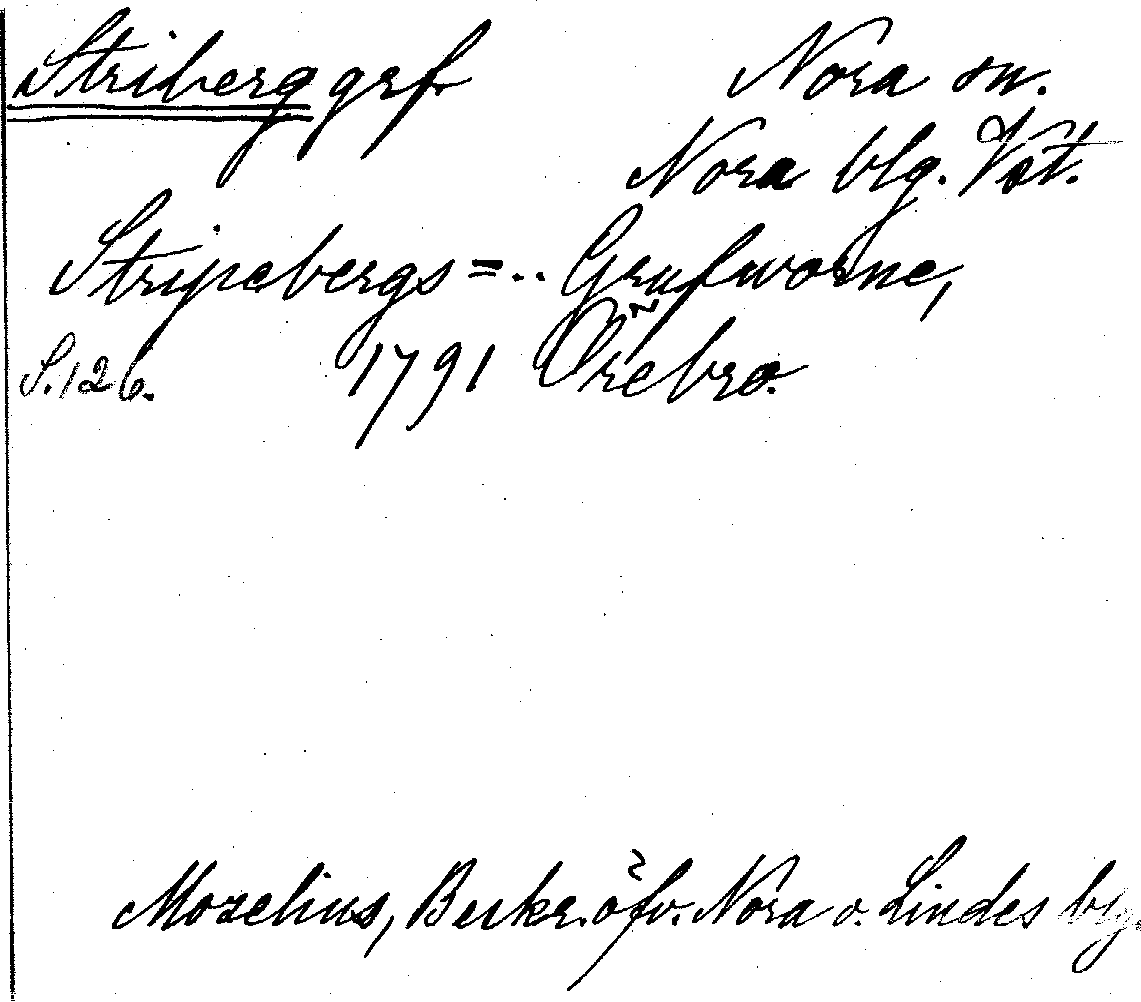 Striberg grf. Nora sn.
Nora blg. Vst.
Stripebergs=.. Grufworne,
S.126. 1791 Örebro.
Mozelius, Beskr. öfv. Nora o. Lindes blg.